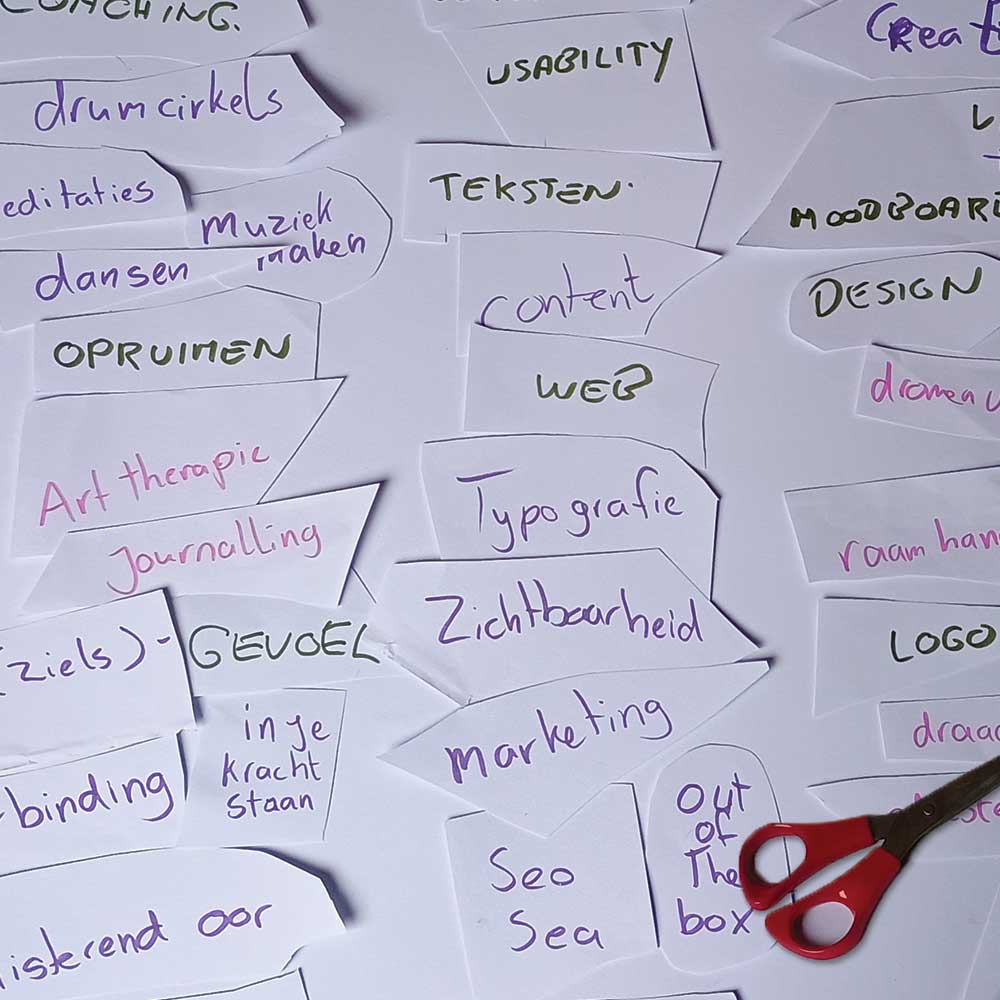 COACHING.
drumcirkels
editaties
muziek
maken
dansen
OPRUIMEN
Art therapie
Journalling
(ziels)-
GEVOEL
binding
in je
kracht
staan
isterend oor
USABILITY
TEKSTEN.
content
WEB
Typografie
Zichtbaarheid
marketing
Seo
Sea
Out
of
The
box
Creat
MOODBOARD
DESIGN
dromen
raam han
LOGO
draad